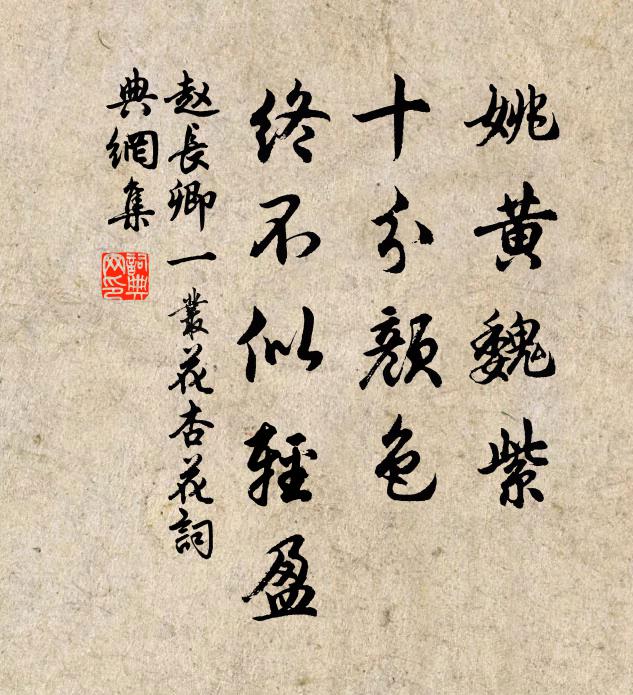 姚黄魏紫
十分颜色
终不似輕盈
赵長卿一叢花杏花詞
典網集
詞典
网印